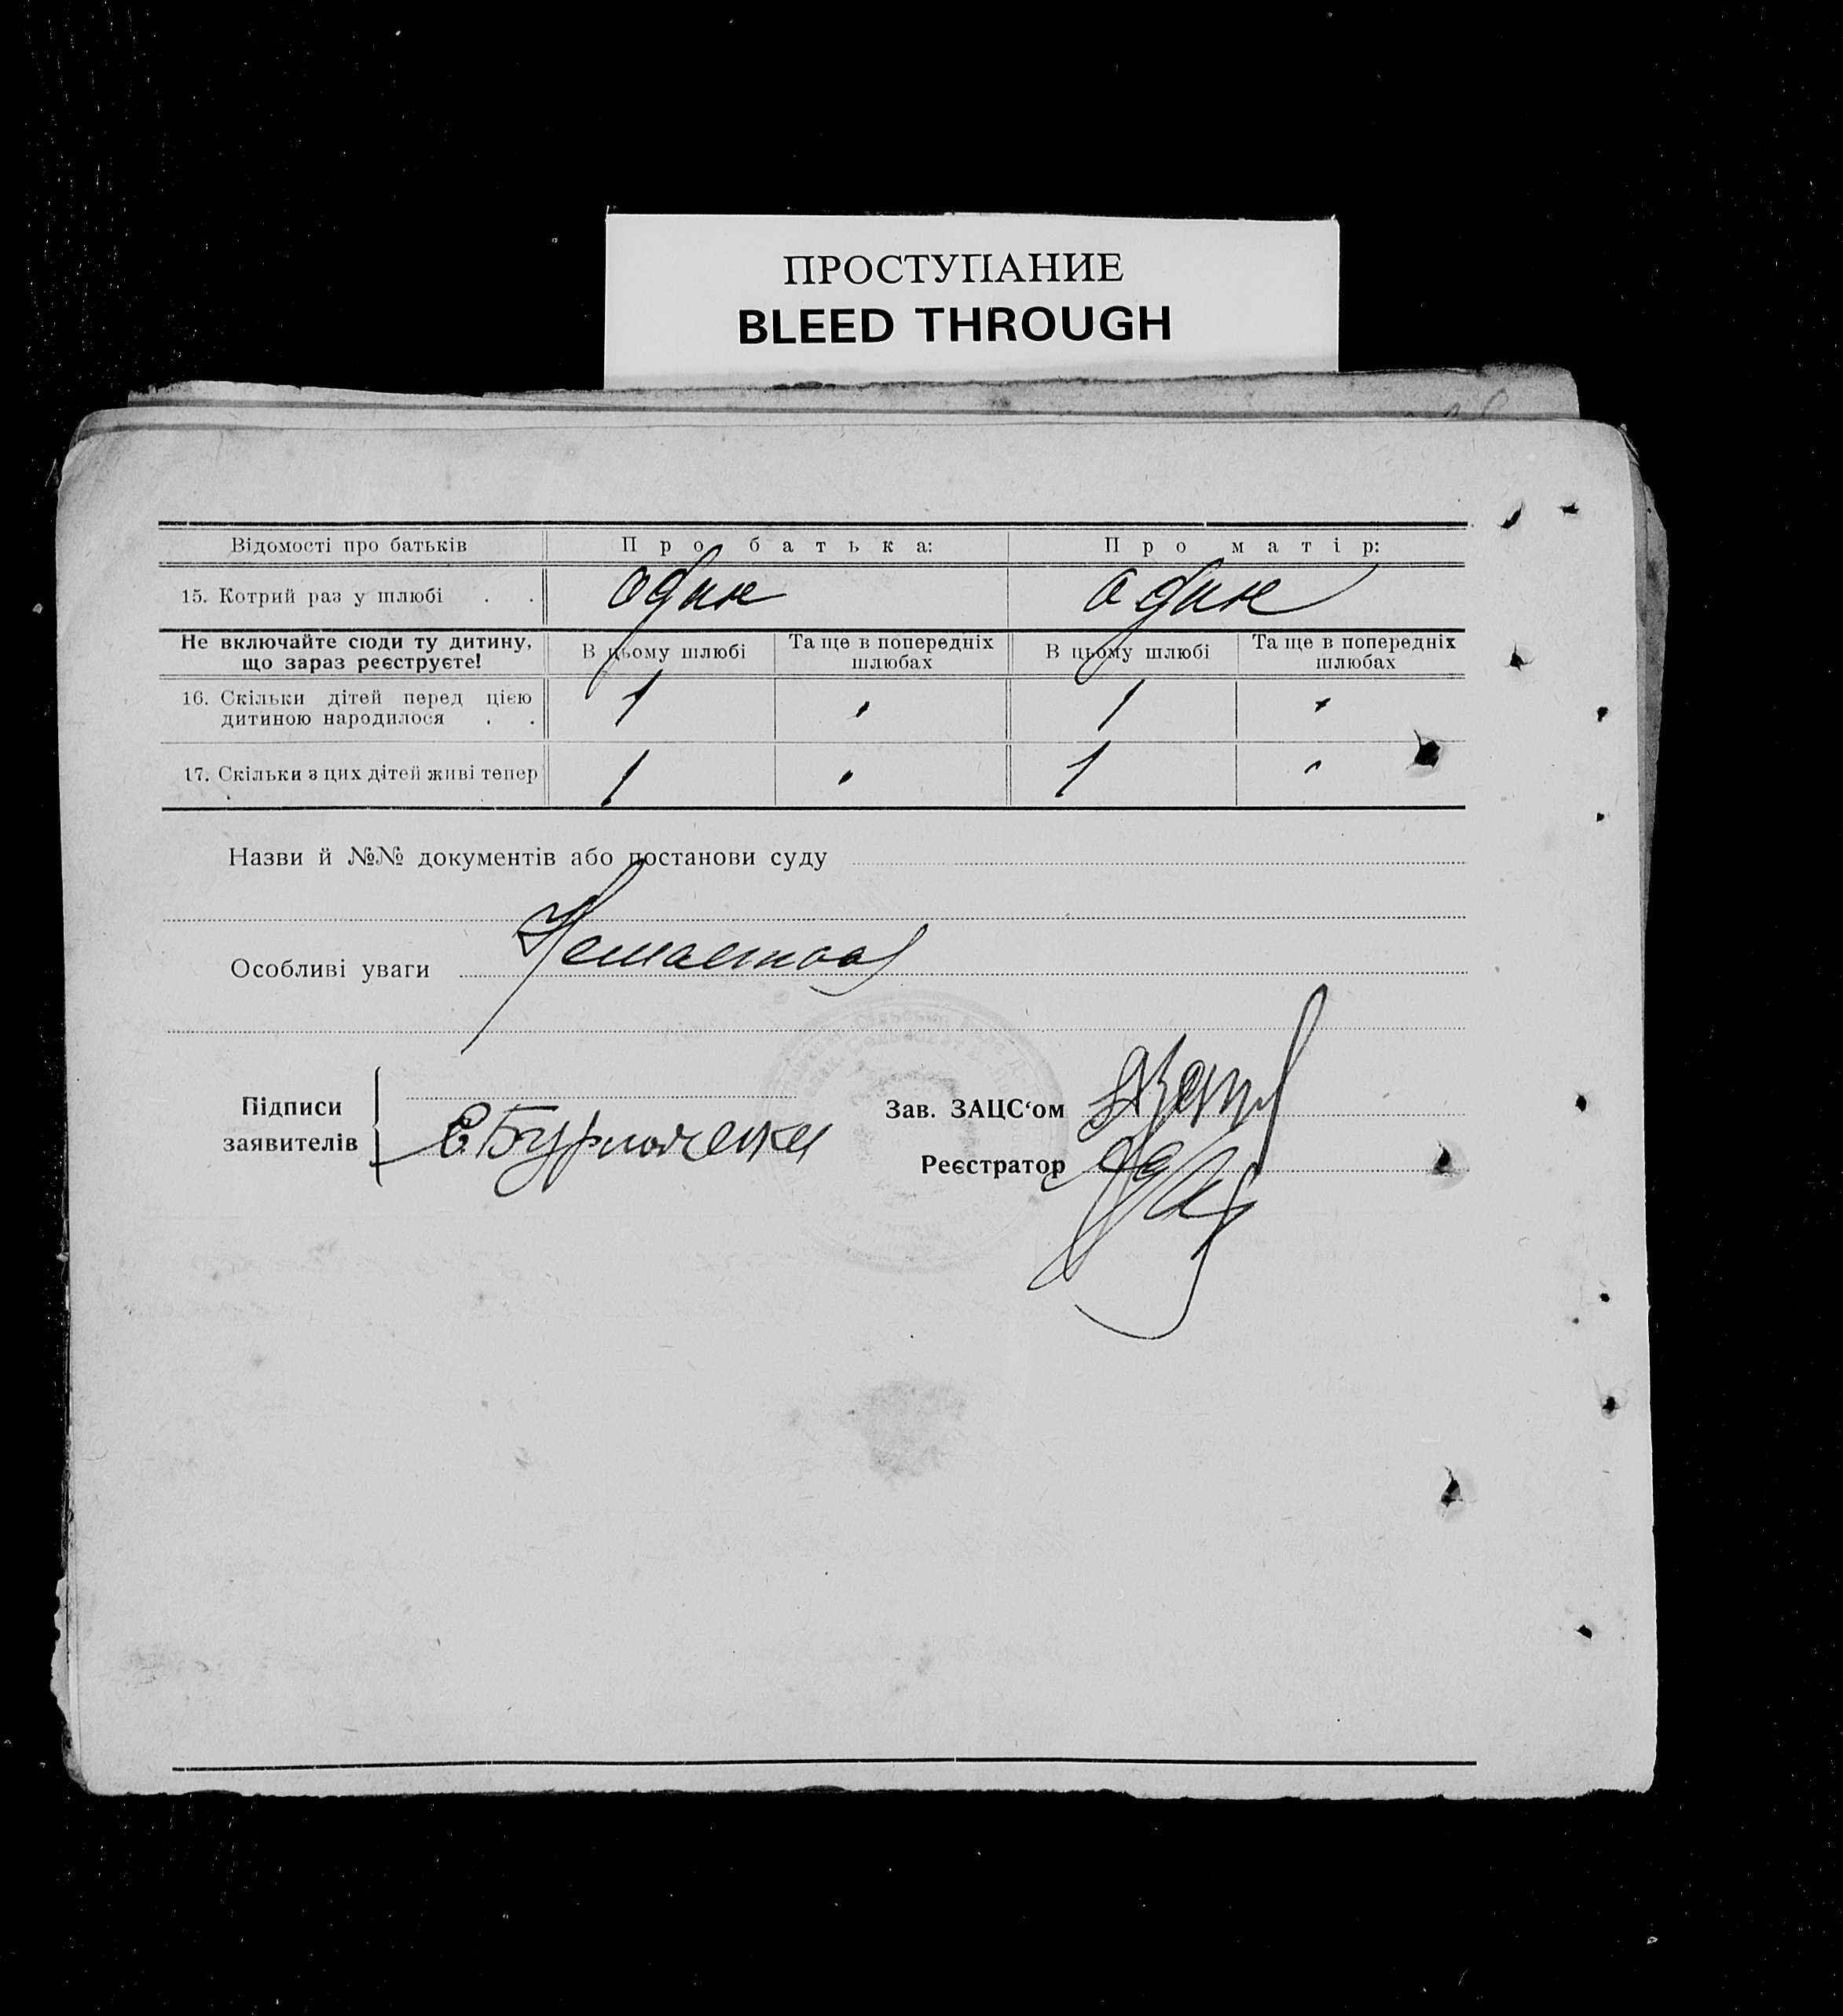 ПРОСТУПАНИЕ
BLEED THROUGH
Відомості про батьків Про батька: Про матір:
15. Котрий раз у шлюбі . . один один
Не включайте сюди ту дитину, що зараз реєструєте! В цьому шлюбі Та ще в попередніх шлюбах В цьому шлюбі Та ще в попередніх шлюбах
16. Скільки дітей перед цією дитиною народилося . . 1 " 1 "
17. Скільки з цих дітей живі тепер 1 " 1 "
Назви й №№ документів або постанови суду
Особливі уваги
Підписи заявителів
Зав. ЗАЦС‘ом
Реєстратор